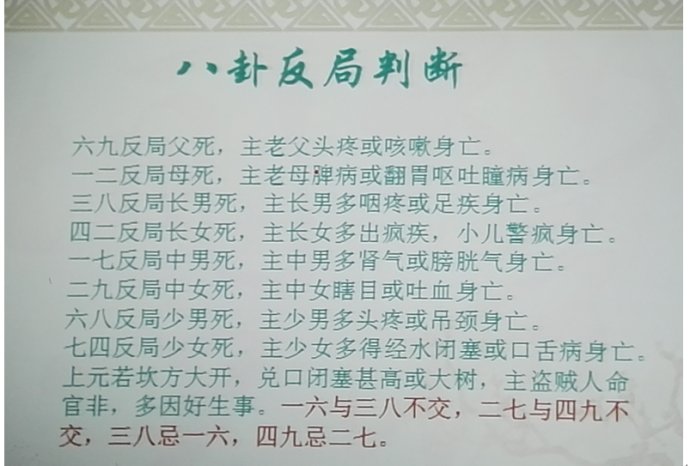 八卦反局判断
六九反局父死，主老父头疼或咳嗽身亡。
一二反局母死，主老母脾病或翻胃呕吐瞳病身亡。
三八反局长男死，主长男多咽疼或足疾身亡。
四二反局长女死，主长女多出疯疾，小儿警疯身亡。
一七反局中男死，主中男多肾气或膀胱气身亡。
二九反局中女死，主中女瞎目或吐血身亡。
六八反局少男死，主少男多头疼或吊颈身亡。
七四反局少女死，主少女多得经水闭塞或口舌病身亡。
上元若坎方大开，兑口闭塞甚高或大树，主盗贼人命
官非，多因好生事。一六与三八不交，二七与四九不
交，三八忌一六，四九忌二七。